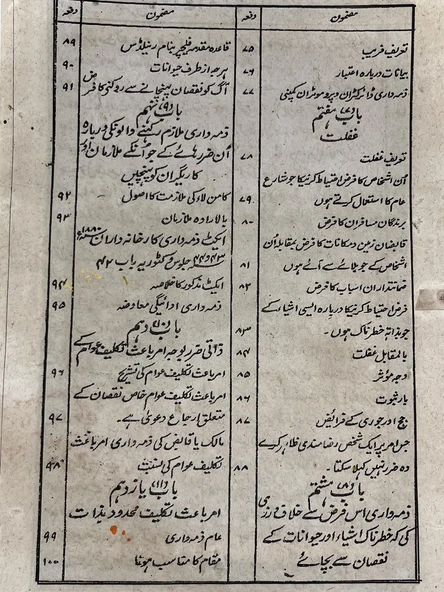 مضمون
دفعہ
تعریف فریب
۷۵
بیانات دربارہ اعتبار
۷۶
ذمہ داری ڈائرکٹران و پروموٹران کمپنی
۷۷
باب (۷) ہفتم
غفلت
تعریف غفلت
۷۸
اُن اشخاص کا فرض احتیاط کرنیکا جو شارع
عام کا استعمال کرتے ہوں
۷۹
برندگان مسافران کا فرض
۸۰
قابضان زمین و مکانات کا فرض بمقابلہ اُن
اشخاص کے جو بلائے سے آئے ہوں
۸۱
ضمانتداران اسباب کا فرض
۸۲
فرض احتیاط کرنیکا دربارہ ایسی اشیاء کے
جو بذاتہ خطرناک ہوں۔
۸۳
بالمقابل غفلت
۸۴
وجہ مؤثر
۸۵
بار ثبوت
۸۶
جج اور جوری کے فرائض
۸۷
جس امر پر ایک شخص رضامندی ظاہر کرے
وہ ضرر نہیں کہلا سکتا۔
۸۸
باب (۸) ہشتم
ذمہ داری اس فرض کے خلاف ورزی
کی کہ خطرناک اشیاء اور حیوانات کے
نقصان سے بچائے
مضمون
دفعہ
قاعدہ مقدمہ فلیچر بنام رئیلنڈس
۸۹
ہرجہ از طرف حیوانات
۹۰
آگ کو نقصان پہنچانے سے روکنیکا فرض
۹۱
باب (۹) نہم
ذمہ داری ملازم رکھنے والونکی دربارہ
اُن ضررہائے کے جو اُنکے ملازمان اور
کاریگران کو پہنچیں
کامن لا کی ملازمت کا اصول
۹۲
بالارادہ ملازمان
۹۳
ایکٹ ذمہ داری کارخانہ داران ۱۸۸۰ء
۴۳ و ۴۴ جلوس وکٹوریہ باب ۴۲
ایکٹ مذکور کا خلاصہ
۹۴
ذمہ داری ادائیگی معاوضہ
۹۵
باب (۱۰) دہم
ذاتی ضرر بوجہ امر باعث تکلیف عوام کے
امر باعث تکلیف عوام کی تشریح
۹۶
امر باعث تکلیف عوام خاص نقصان کے
متعلق ارجاع دعویٰ ہے۔
۹۷
مالک یا قابض کی ذمہ داری امر باعث
تکلیف عوام کی نسبت
۹۸
باب (۱۱) یازدہم
امر باعث تکلیف محدود بذات
عام ذمہ داری
۹۹
مقام کا مناسب ہونا
۱۰۰